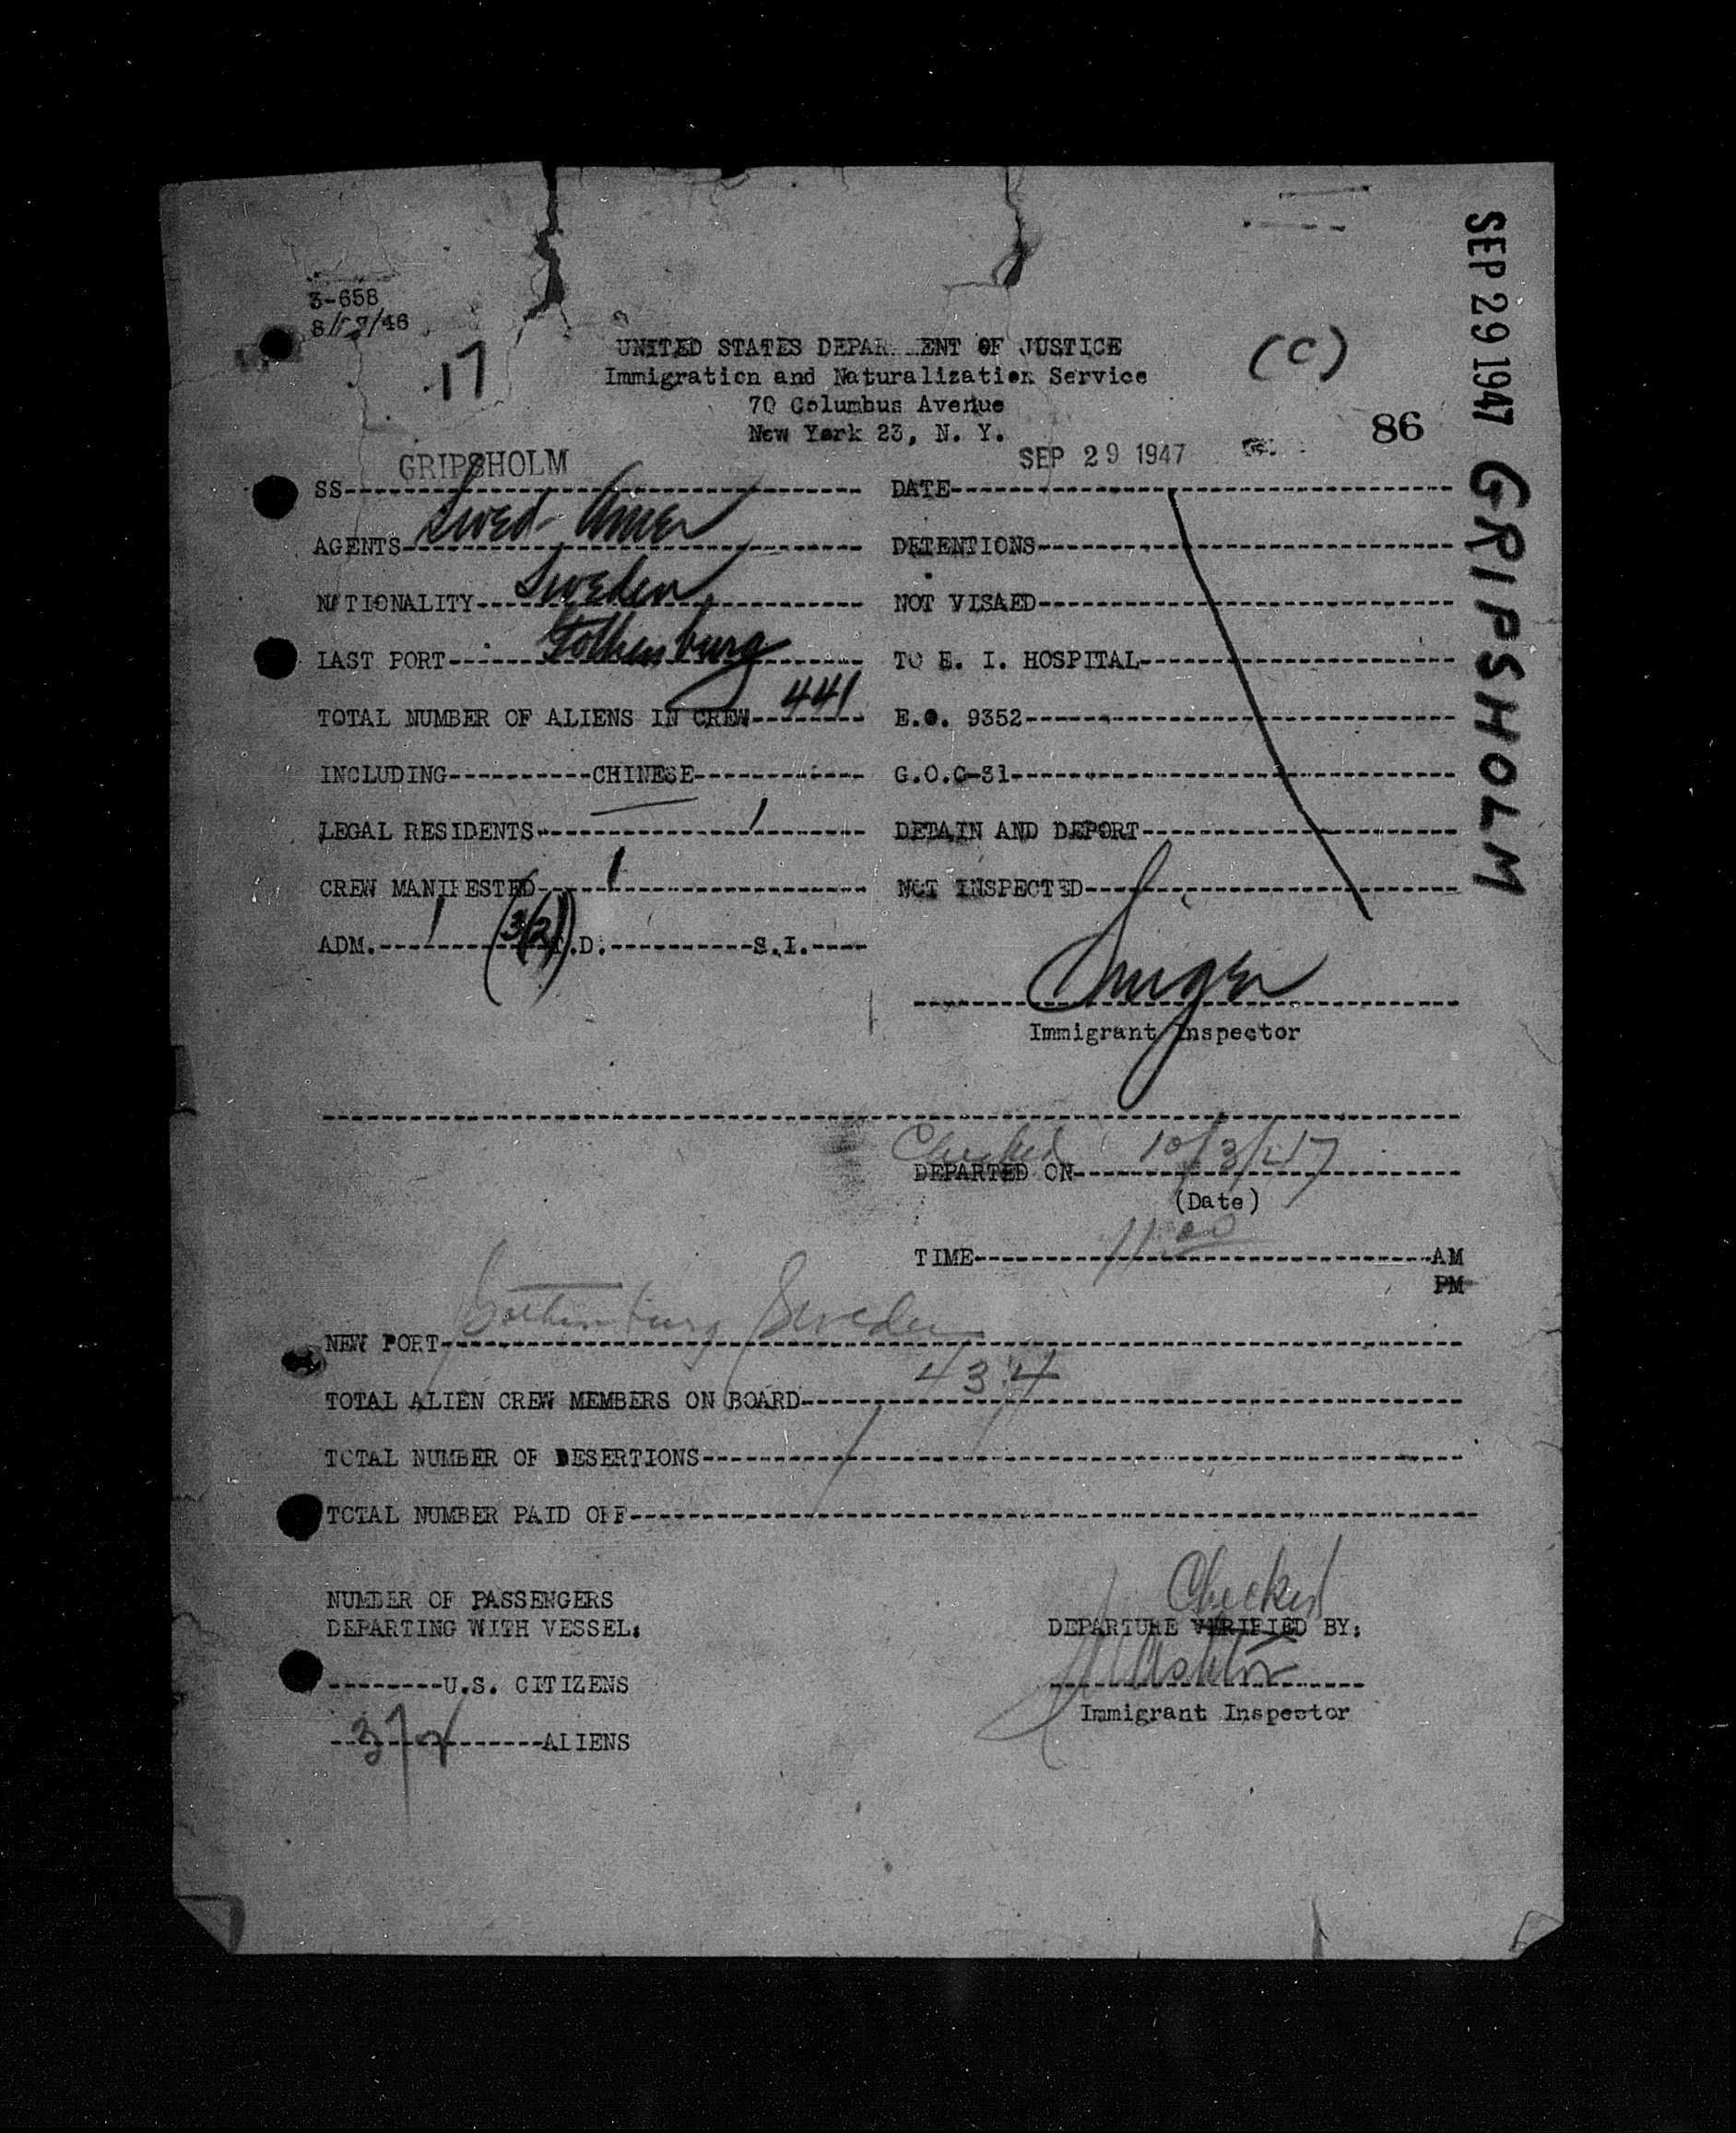 3-658
8/27/46
17
UNITED STATES DEPAR ENT OF JUSTICE
(C)
Immigration and Naturalization Service
70 Columbus Avenue
86
New York 23, N. Y.
SEP 29 1947 GRIPSHOLM
SS GRIPSHOLM DATE SEP 29 1947
AGENTS Swed-Amer DETENTIONS
NATIONALITY Sweden NOT VISAED
LAST PORT Gothenburg TO E. I. HOSPITAL
TOTAL NUMBER OF ALIENS IN CREW 441 E.O. 9352
INCLUDING CHINESE G.O.C-31
LEGAL RESIDENTS 1 DETAIN AND DEPORT
CREW MANIFESTED 1 NOT INSPECTED
ADM. 1 .D. S.I.
Immigrant Inspector
Checked
DEPARTED ON 10/3/47
(Date)
TIME 11:00 AM
PM
NEW PORT Gothenburg Sweden
TOTAL ALIEN CREW MEMBERS ON BOARD 434
TOTAL NUMBER OF DESERTIONS
TOTAL NUMBER PAID OFF
NUMBER OF PASSENGERS
DEPARTING WITH VESSEL:
Checked
DEPARTURE VERIFIED BY:
U.S. CITIZENS
Immigrant Inspector
ALIENS